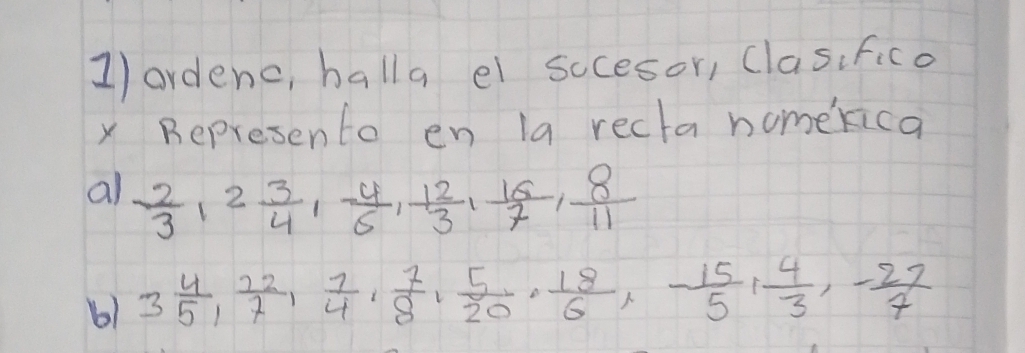 1) ordeno, halla el sucesor, clasifico
y Represento en la recta numérica
a) 2/3, 2 3/4, 4/6, 12/3, 16/7, 8/11
b) 3 4/5, 22/7, 7/4, 7/8, 5/20, 18/6, -15/5, 4/3, -27/7